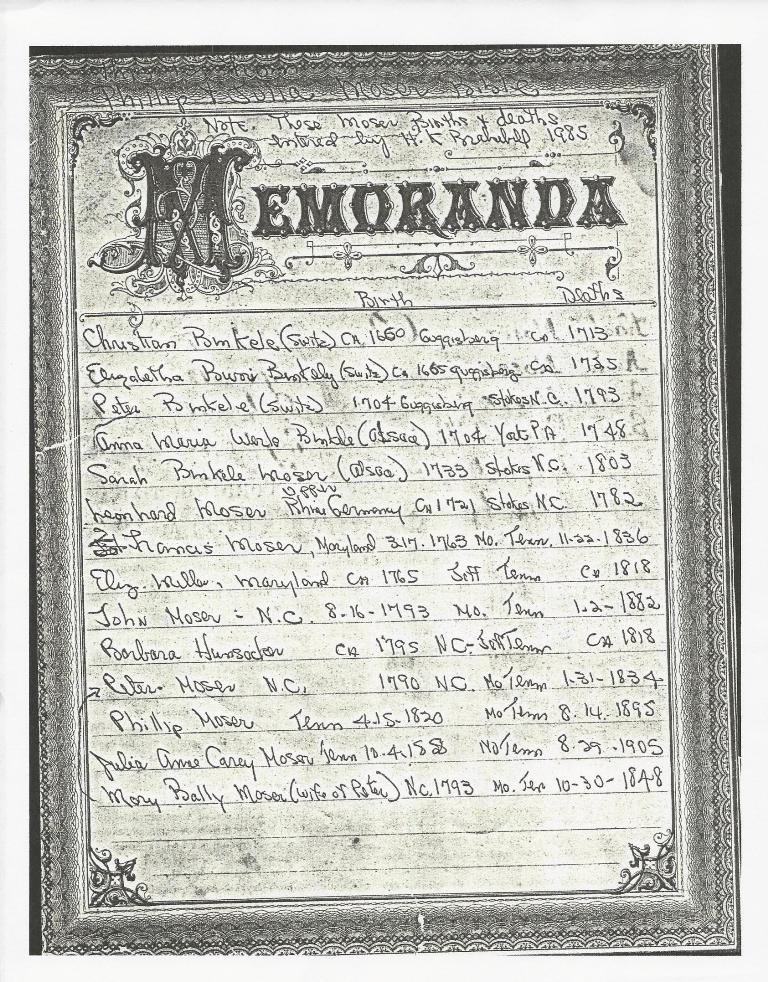 Phillip & Julia Moser Bible
Note. These Moser Births & deaths
entered by H. K. 1985
MEMORANDA
Birth Deaths
Christian Binkele (Switz) CA 1650 Guggisberg CA 1713
Elizabetha Binkely (Switz) Ca 1665 guggisberg Ca 1735
Peter Binkele (Switz) 1704 Guggisberg Stokes N.C. 1793
Anna Maria Werle Binkle (Alsace) 1704 York PA 1748
Sarah Binkele Moser (Alsac) 1733 Stokes N.C. 1803
upper
Leonhard Moser Rhine Germany CA 1721 Stokes NC. 1782
Francis Moser, Maryland 3.17.1763 Mo. Tenn. 11-22-1836
Eliz. Miller, Maryland CA 1765 Jeff Tenn Ca 1818
John Moser - N.C. 8-16-1793 Mo. Tenn 1-2-1882
Barbara Hunsacker CA 1795 NC-Jeff Tenn CA 1818
Peter Moser N.C. 1790 NC. Mo Tenn 1-31-1834
Phillip Moser Tenn 4.15-1820 Mo Tenn 8.14.1895
Julia Anne Carey Moser Tenn 10.4. Mo Tenn 8.29.1905
Mary Bally Moser (wife of Peter) NC. 1793 Mo. Ten 10-30-1848